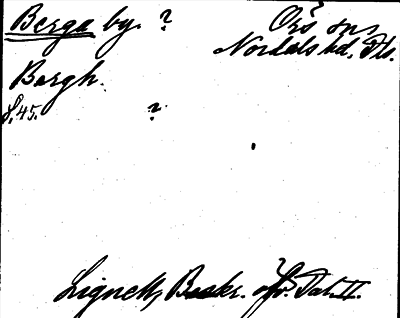 Berga by. ?
Örs sn,
Nordals hd, Dls.
Bergh.
s. 45. ?
Lignell, Beskr. öfv. Dal. II.